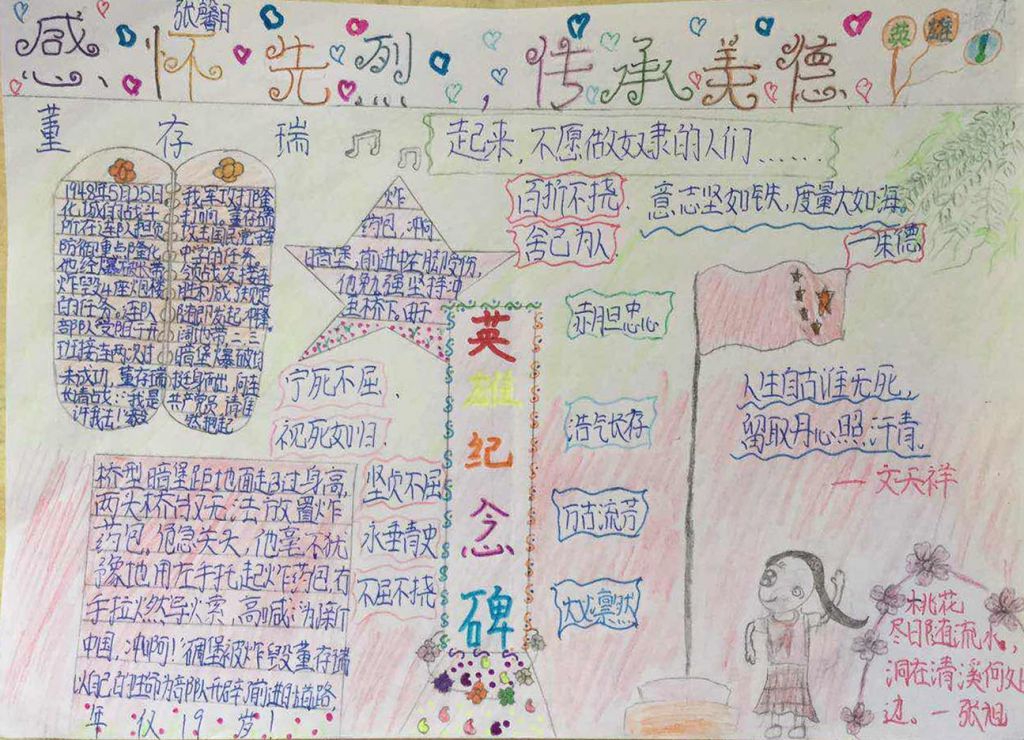 张馨月
感怀先烈，传承美德
英雄！
董存瑞
起来，不愿做奴隶的人们……
1948年5月25日，
我军攻打隆
化城的战斗
打响，董存瑞
所在连队担负
攻击国民党
防御重点隆化
中学的任务，
他经
领战友接连
炸毁4座炮楼
胜利
的任务。连队
随即发起冲锋。
部队受阻于开
二、三
班接连两次
暗堡
未成功，董存瑞
挺身而出，向连
长请战：“我是
共产党员，请准
许我去！”
抱起
炸
药包，冲向
暗堡，前进中左腿受伤，
他勉强坚持冲
至桥下。由于
桥型暗堡距地面超过身高，
两头桥台又无法放置炸
药包，危急关头，他毫不犹
豫地用左手托起炸药包，右
手拉燃导火索，高喊：为了新
中国，冲啊！碉堡被炸毁董存瑞
以自己的生命为部队开辟前进的道路，
年仅19岁！
百折不挠，
舍己为人
意志坚如铁，度量大如海。
—朱德
宁死不屈，
视死如归．
坚贞不屈
永垂青史
不屈不挠
英雄纪念碑
赤胆忠心
浩气长存
万古流芳
大义凛然
人生自古谁无死，
留取丹心照汗青。
—文天祥
桃花
尽日随流水，
洞在清溪何处
边。—张旭